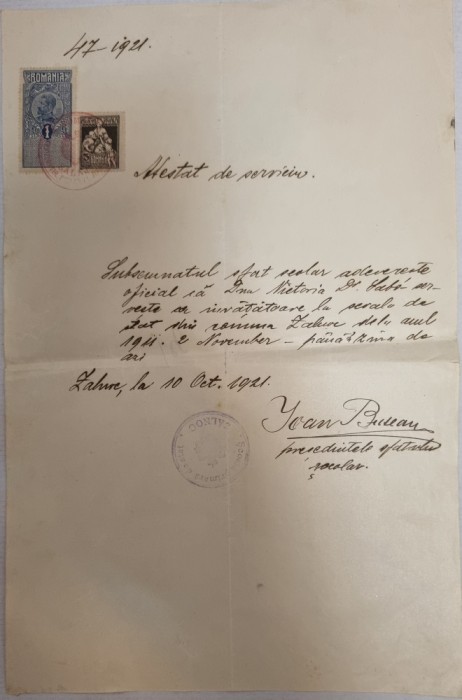 47 1921.
ROMANIA
1
Atestat de serviciu.
Subsemnatul sfat scolar adevereste
oficial că Dna Victoria Dl. Sabó ser-
veste ca învățătoare la scoala de
stat din comuna Zahuc dela anul
1911. 2 November – până
azi
Zahuc, la 10 Oct. 1921.
Ioan Budean
presedintele sfatului
școlar.